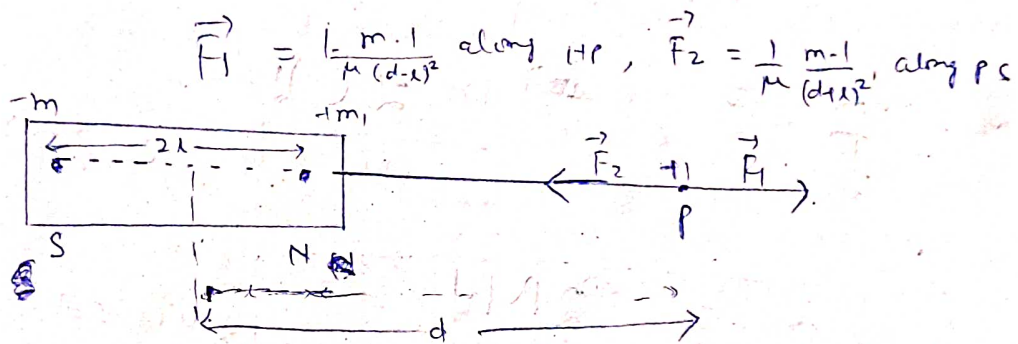 F₁ = 1/μ m·1/(d-l)² along NP, F₂ = 1/μ m·1/(d+l)², along PS
-m +m,
2l
F₂ +1 F₁
P
S N
d